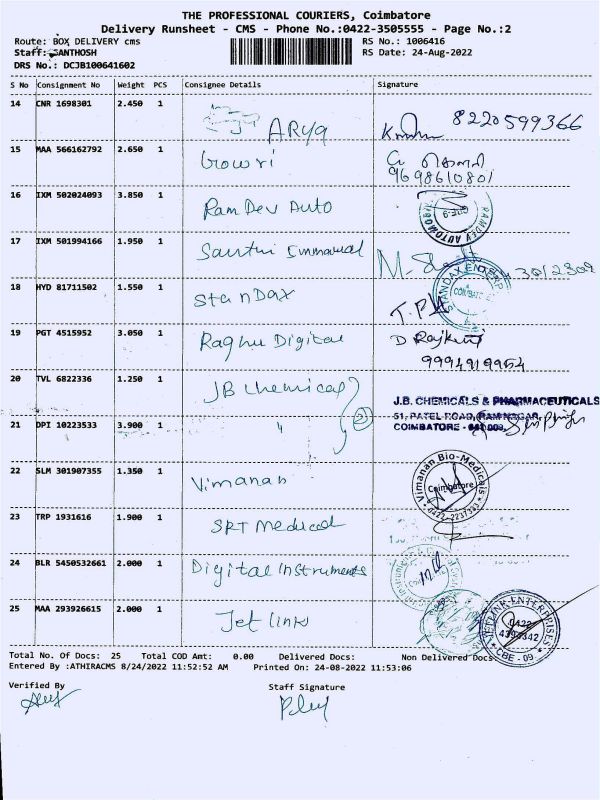 THE PROFESSIONAL COURIERS, Coimbatore
Delivery Runsheet - CMS - Phone No.:0422-3505555 - Page No.:2
Route: BOX DELIVERY cms RS No.: 1006416
Staff: SANTHOSH RS Date: 24-Aug-2022
DRS No.: DCJB100641602
S No Consignment No Weight PCS Consignee Details Signature
14 CNR 1698301 2.450 1 ARya 8220599366
15 MAA 566162792 2.650 1 Gowri G கௌரி
9698610801
16 IXM 502024093 3.850 1 Ram Dev Auto RAMDEV AUTOMOB
17 IXM 501994166 1.950 1 Santhi Immanuel
18 HYD 81711502 1.550 1 StanDax STANDAX ENTERP
19 PGT 4515952 3.050 1 Raghu Digital D Rajkumar
9994919954
20 TVL 6822336 1.250 1 JB Chemical J.B. CHEMICALS & PHARMACEUTICALS
21 DPI 10223533 3.900 1 " 2 51, PATEL ROAD, RAM NAGAR,
COIMBATORE - 641 009.
22 SLM 301907355 1.350 1 Vimanan Vimanan Bio-Medicals Coimbatore 0422-2237393
23 TRP 1931616 1.900 1 SRT Medical
24 BLR 5450532661 2.000 1 Digital Instruments
25 MAA 293926615 2.000 1 Jet link JETLINK ENTERPRISES 0422 4393342 CBE - 09.
Total No. Of Docs: 25 Total COD Amt: 0.00 Delivered Docs: Non Delivered Docs:
Entered By :ATHIRACMS 8/24/2022 11:52:52 AM Printed On: 24-08-2022 11:53:06
Verified By Staff Signature